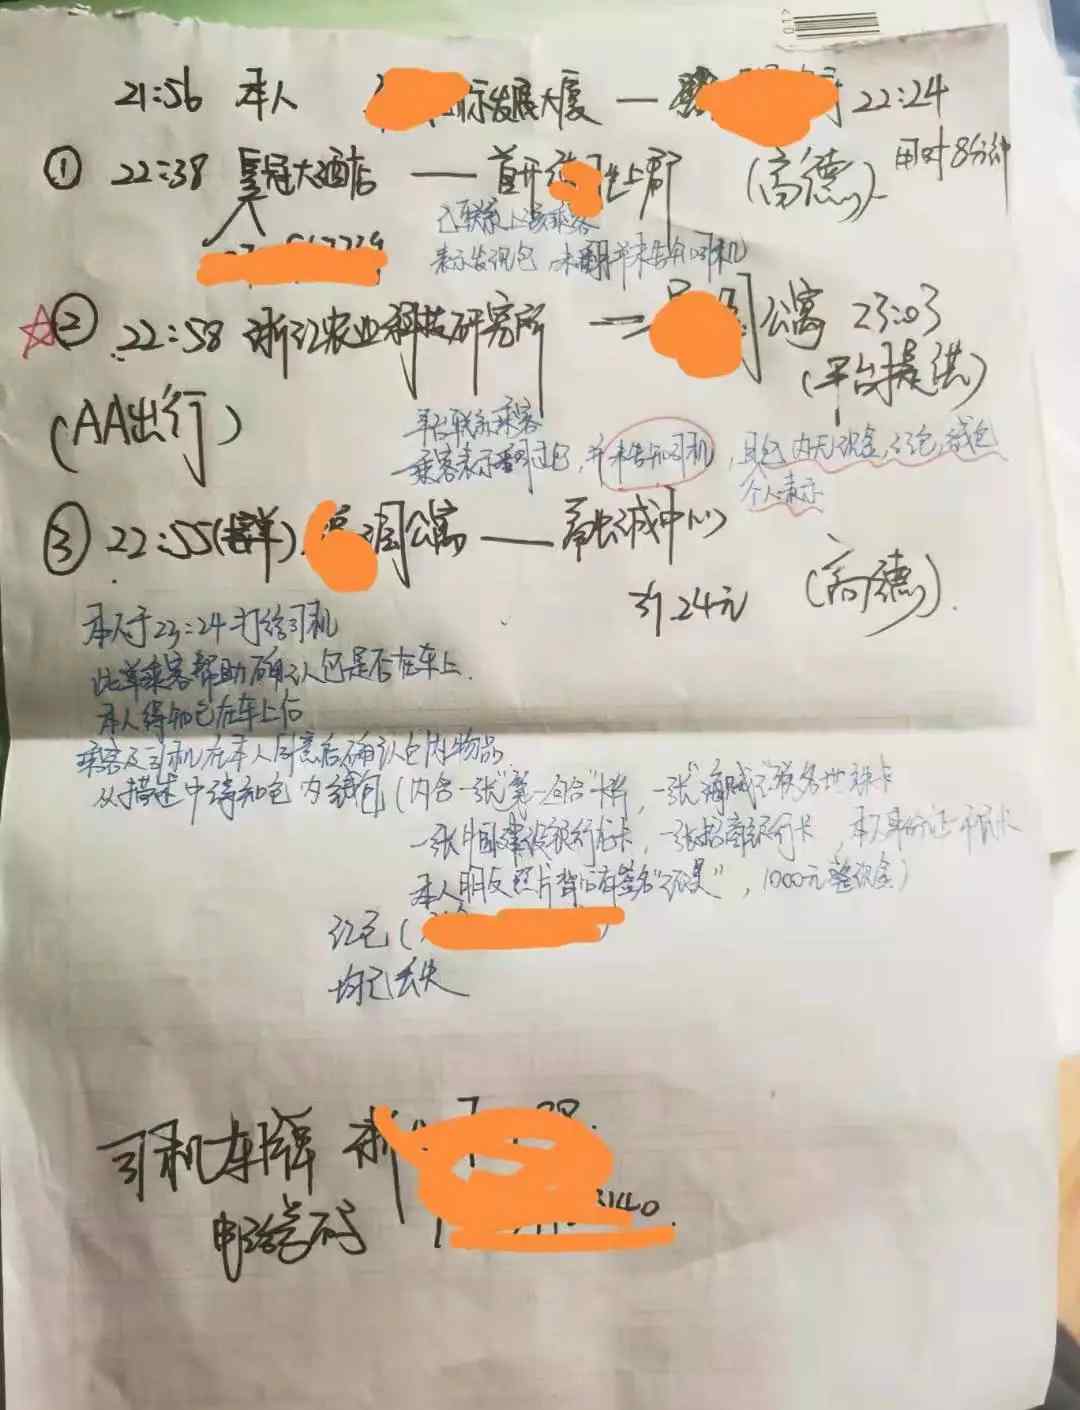 21:56 本人 际发展大厦 — 22:24
① 22:38 皇冠大酒店 — 首开 上郡 (高德) 用时8分钟
已联系上该乘客
表示发现包,未翻并未告知司机
② 22:58 浙江农业科技研究所 — 公寓 23:03
(AA出行) (平台提供)
平台联系乘客
乘客表示看到过包,并未告知司机,且包内无现金,红包,钱包
个人表示
③ 22:55(接单) 公寓 — 融诚中心
24元 (高德)
本人于23:24打给司机
此单乘客帮助确认包是否在车上.
本人得知包在车上后
乘客及司机在本人同意后确认包内物品.
从描述中得知包内钱包(内含一张"第一句合"卡,一张
一张中国建设银行卡,一张招商银行卡,本人身份证
本人朋友照片背后有签名,1000元整现金)
红包(
均已丢失
司机车牌 浙
电话号码 3140